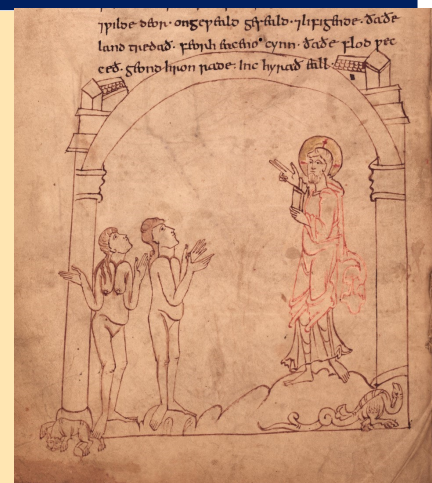 ⁊ƿilde deor · ongeƿeald geseald · ⁊lifigende · ðaðe
land tredað · feorh eaceno cynn · ðaðe flod ƿec
ceð · geond hron rade · Inc hyrað eall ·